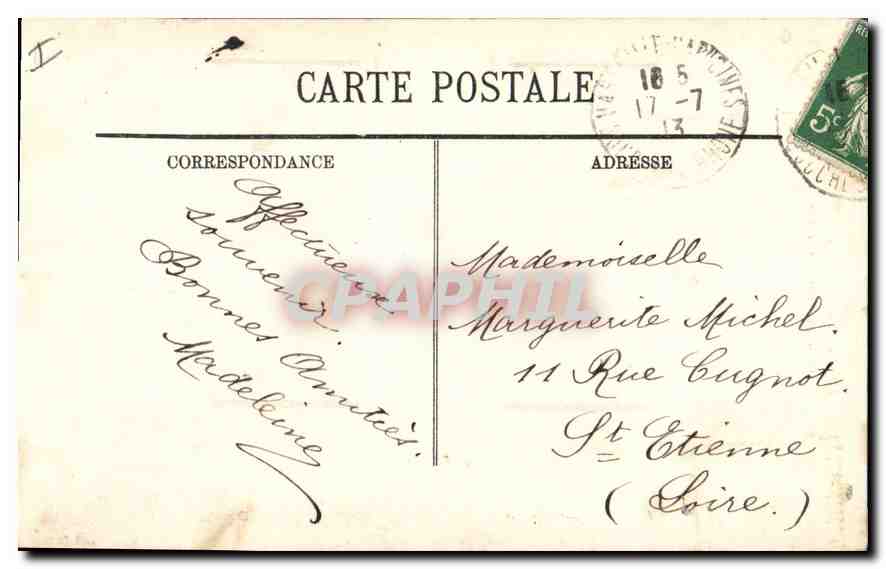 I
CARTE POSTALE
CORRESPONDANCE
ADRESSE
16 5
17 -7
13
RHONE
5c
Affectueux
souvenir.
Bonnes Amitiés.
Madeleine
Mademoiselle
Marguerite Michel.
11 Rue Cugnot.
St Etienne
(Loire.)
CPAPHIL